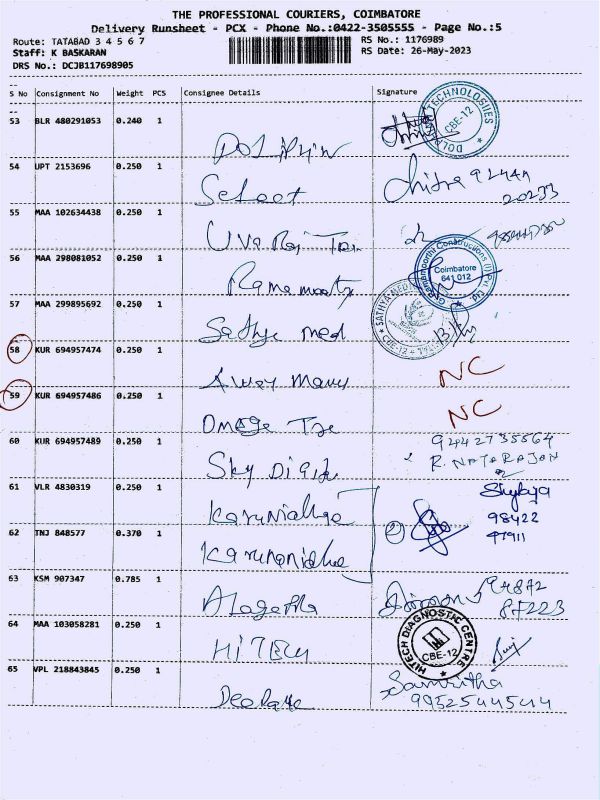 THE PROFESSIONAL COURIERS, COIMBATORE
Delivery Runsheet - PCX - Phone No.:0422-3505555 - Page No.:5
Route: TATABAD 3 4 5 6 7 RS No.: 1176989
Staff: K BASKARAN RS Date: 26-May-2023
DRS No.: DCJB117698905
S No Consignment No Weight PCS Consignee Details Signature
53 BLR 480291053 0.240 1 DOLPHIN
DOLPHIN TECHNOLOGIES CBE-12
54 UPT 2153696 0.250 1 Select Chitra 92442
20233
55 MAA 102634438 0.250 1 Uva Raj
56 MAA 298081052 0.250 1 Ramamoorthy
Ramamoorthi Constructions (I) Pvt. Ltd. Coimbatore 641 012
57 MAA 299895692 0.250 1 Sathya med
SATHYA MED CBE-12
58 KUR 694957474 0.250 1 Away Manu NC
59 KUR 694957486 0.250 1 Omega NC
60 KUR 694957489 0.250 1 Sky Digit 9442735564
R. NATARAJAN
61 VLR 4830319 0.250 1 Karunidhi Shylaja
98422
62 TNJ 848577 0.370 1 Karunanidhi 47911
63 KSM 907347 0.785 1 Alagappa 94872
87223
64 MAA 103058281 0.250 1 HITECH
HITECH DIAGNOSTIC CENTRE CBE-12
65 VPL 218843845 0.250 1 Samyutha
9952544544